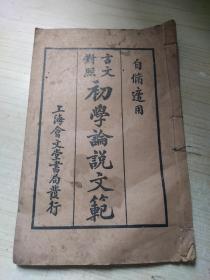 自脩適用
言文對照
初學論說文範
上海會文堂書局發行